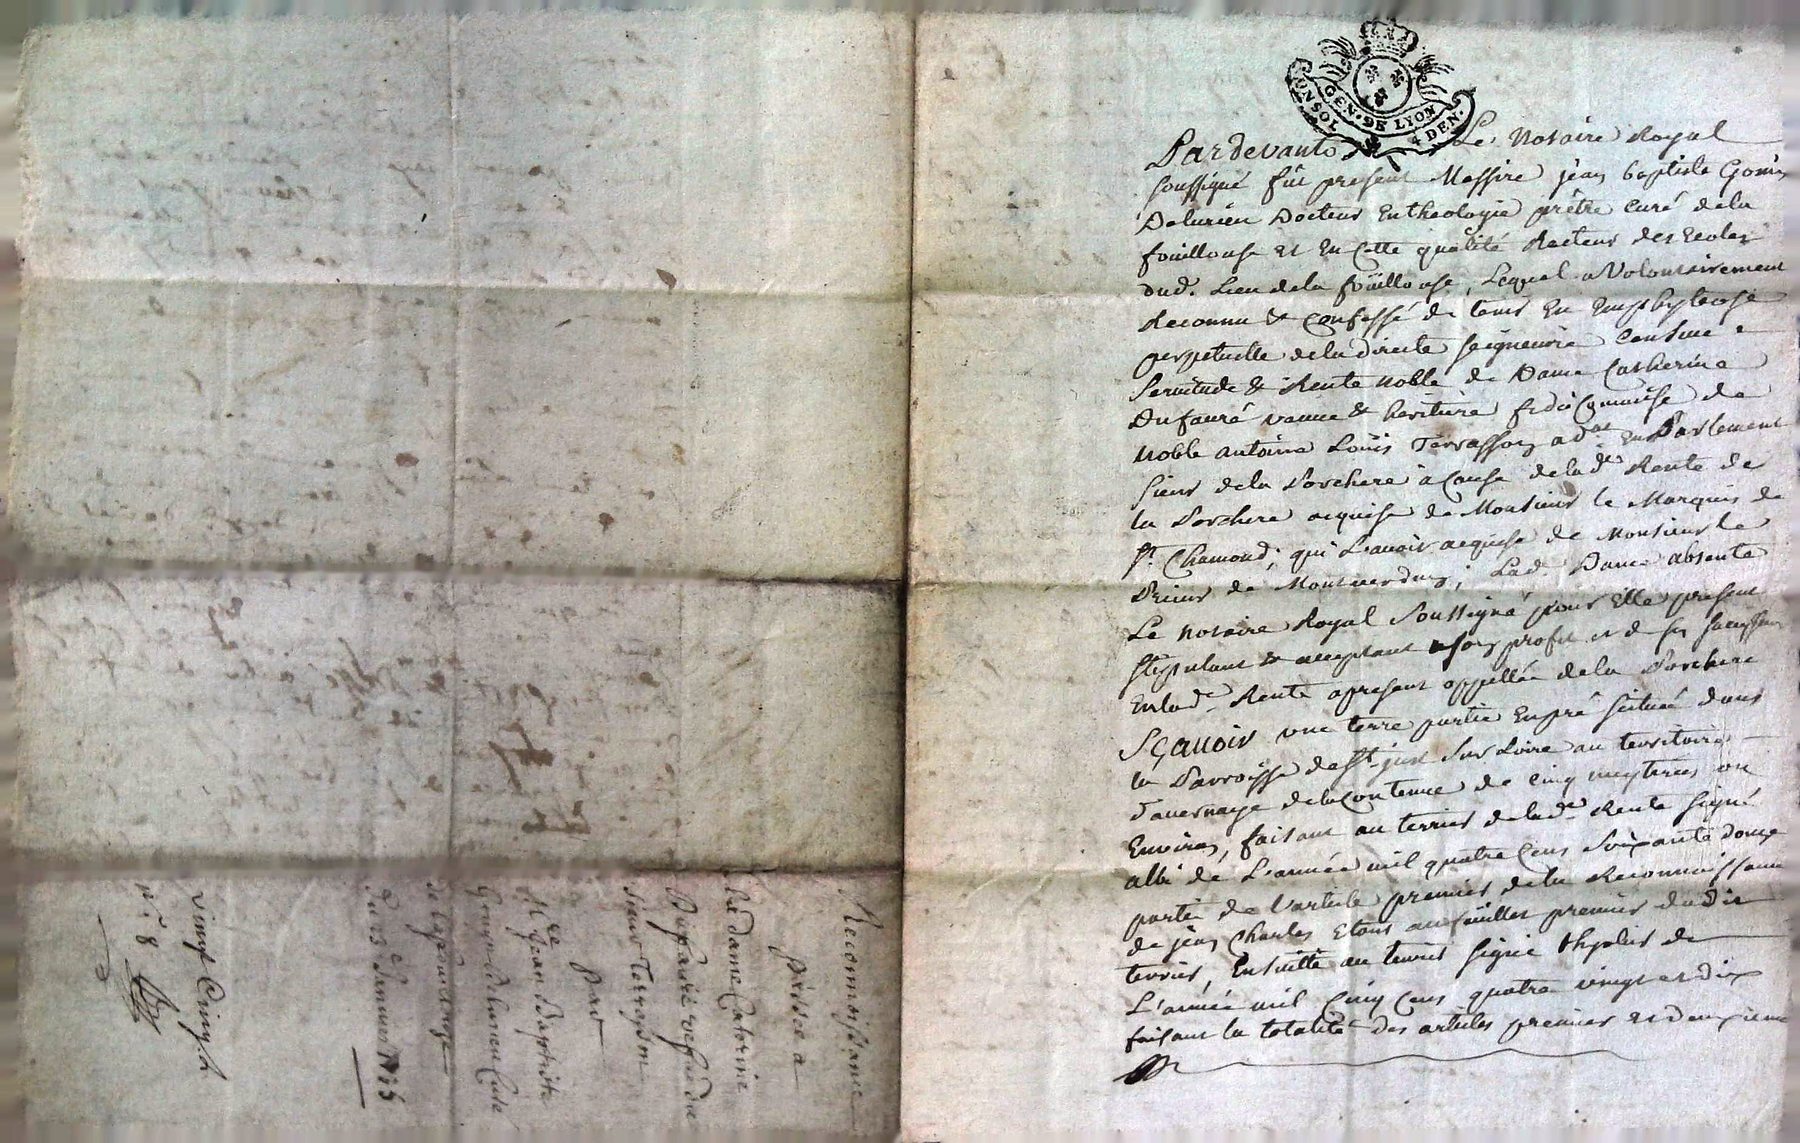 GEN. DE LYON
UN SOL 4 DEN.
Pardevant Le Notaire Royal
soussigné fût present Messire jean baptiste Gonin
Delurieu Docteur En theologie prêtre curé dela
fouillouse et En Cette qualité Recteur des Ecoles
dud. Lieu dela foüillouse, Lequel a Volontairement
Reconnu & Confessé de tenir En Emphyteose
perpetuelle dela directe seigneurie Censive
Servitude & Rente Noble de Dame Catherine
Dufauré veuve & heritiere fidei
Noble antoine Louis Terrasson ad.at En Parlement
sieur dela Porchere à Cause dela d.e Rente de
la Porchere acquise de Monsieur le Marquis de
St. Chamond; qui L'avoit acquise de Monsieur le
Prieur de Montverdun; Lad. Dame absente
Le notaire Royal Soussigné pour Elle present
stipulant & acceptant a son profit et de ses successeurs
En lad.e Rente apresent appellée dela Porchere
SÇAUOIR une terre partie En pré scituée dans
la Parroisse de St. just Sur Loire au territoire
d'avernage dela Contenue de cinq meyterées ou
Environ, faisant au terrier dela d.e Rente signé
albi de L'année mil quatre Cens Soixante douze
partie de l'article premier dela Reconnoissance
de jean Charles Etant au feüillet premier dudit
terrier, Ensuitte au terrier signé
L'année mil Cinq Cens quatre vingt et dix
faisant la totalité des articles premier et deuxieme
Reconnoissance
Passée a
La dame Catherine
Dufauré vefve du
sieur Terrasson
Par
M.re Jean Baptiste
Gonyn Delurieu Curé
de la foüillouse
Du 23 e Janvier
vingt Cinq s.
n.o 8